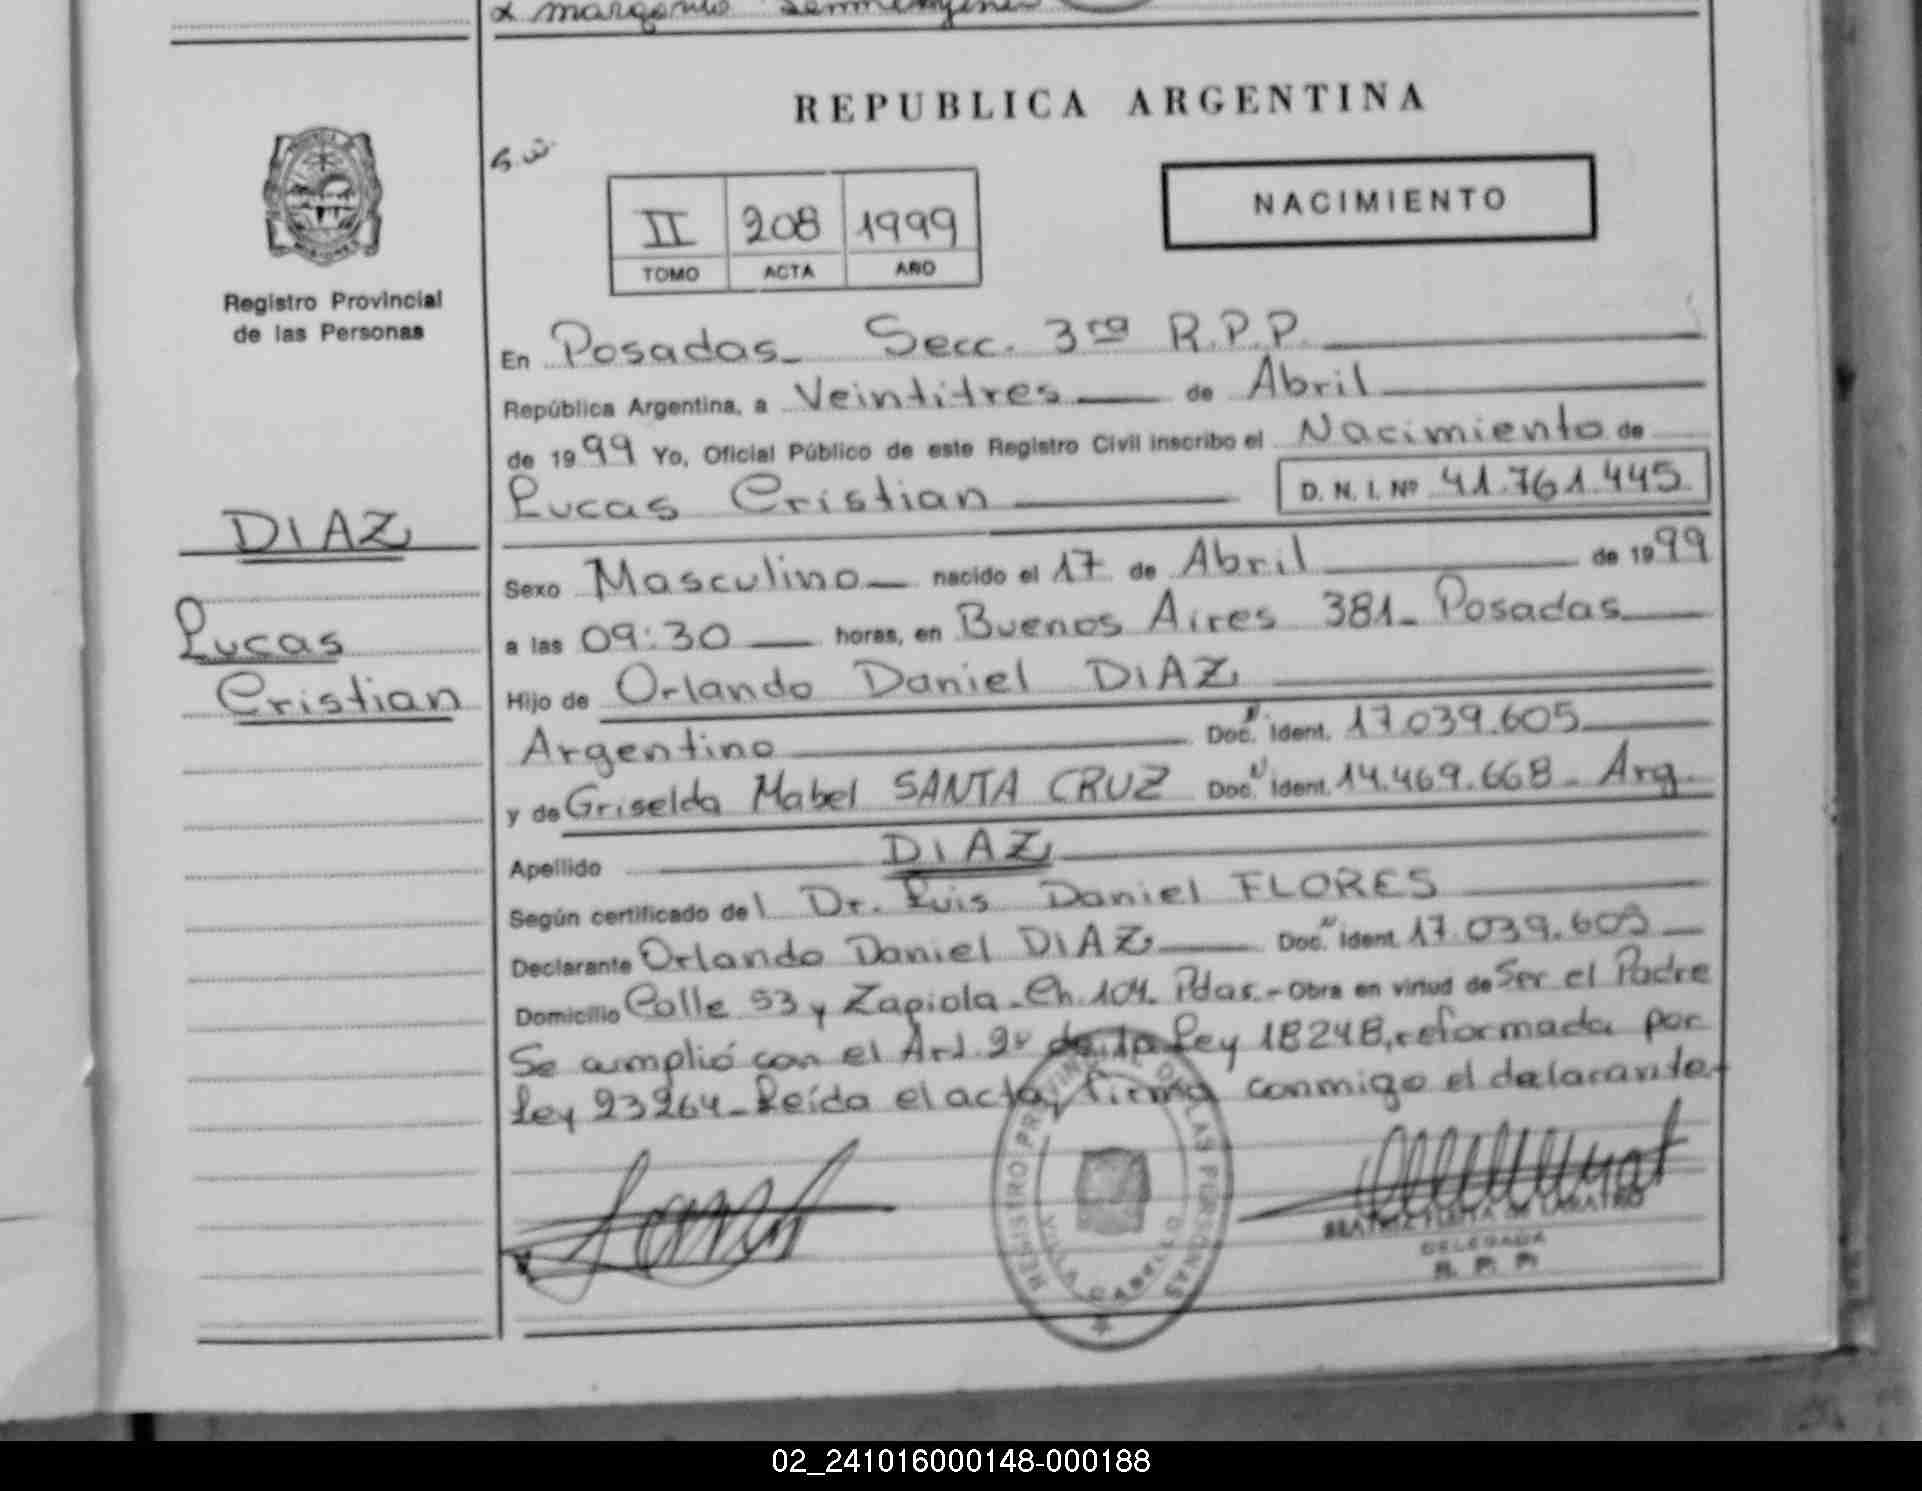 REPUBLICA ARGENTINA
II 208 1999
TOMO ACTA AÑO
NACIMIENTO
Registro Provincial
de las Personas
DIAZ
Lucas
Cristian
En Posadas_ Secc. 3ra R.P.P.
República Argentina, a Veintitres de Abril
de 1999 Yo, Oficial Público de este Registro Civil inscribo el Nacimiento de
Lucas Cristian D. N. I. Nº 41.761.445.
Sexo Masculino nacido el 17 de Abril de 1999
a las 09:30 horas, en Buenos Aires 381_ Posadas
Hijo de Orlando Daniel DIAZ
Argentino Doc. Ident. 17.039.605
y de Griselda Mabel SANTA CRUZ Doc. Ident. 14.469.668_ Arg.
Apellido DIAZ
Según certificado del Dr. Luis Daniel FLORES
Declarante Orlando Daniel DIAZ Doc. Ident. 17.039.605
Domicilio Calle 53 y Zapiola_Ch.104. Pdas.- Obra en virtud de Ser el Padre
Se cumplió con el Art. 2º de la Ley 18248, reformada por
Ley 23264_Leída el acta, firma conmigo el delarante-
REGISTRO PROVINCIAL DE LAS PERSONAS
VILLA CABELLO
BEATRIZ DE
DELEGADA
R. P. P.
02_241016000148-000188